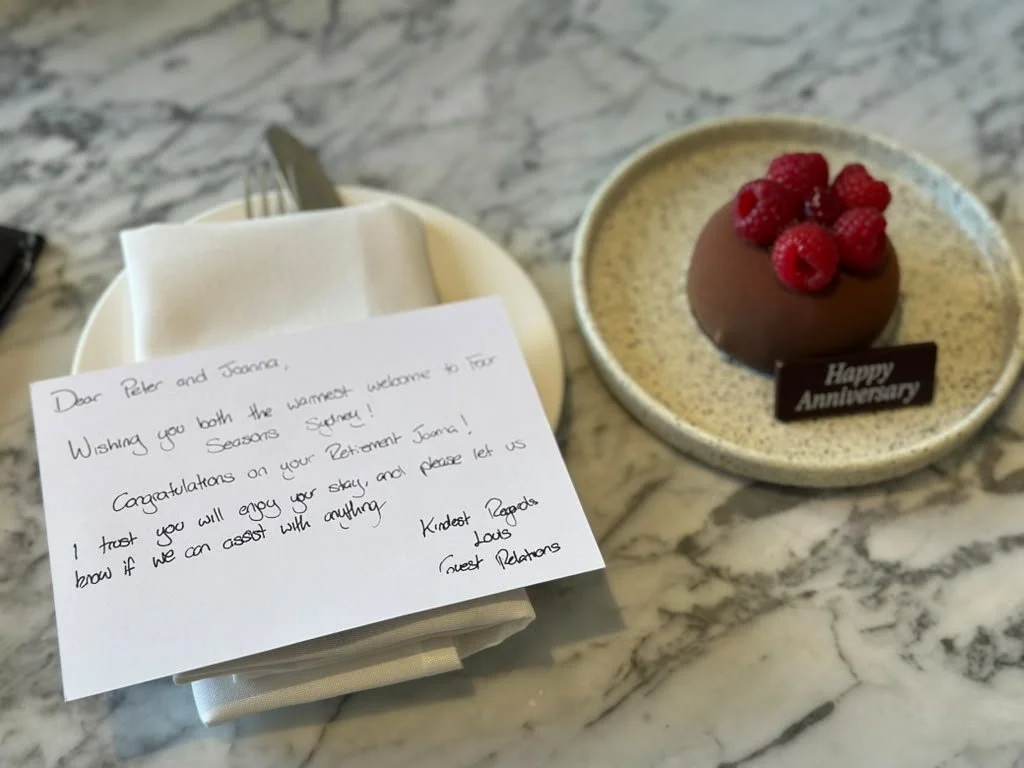 Dear Peter and Joanna,
Wishing you both the warmest welcome to Four
Seasons Sydney!
Congratulations on your Retirement Joanna!
I trust you will enjoy your stay, and please let us
know if we can assist with anything
Kindest Regards
Louis
Guest Relations
Happy
Anniversary